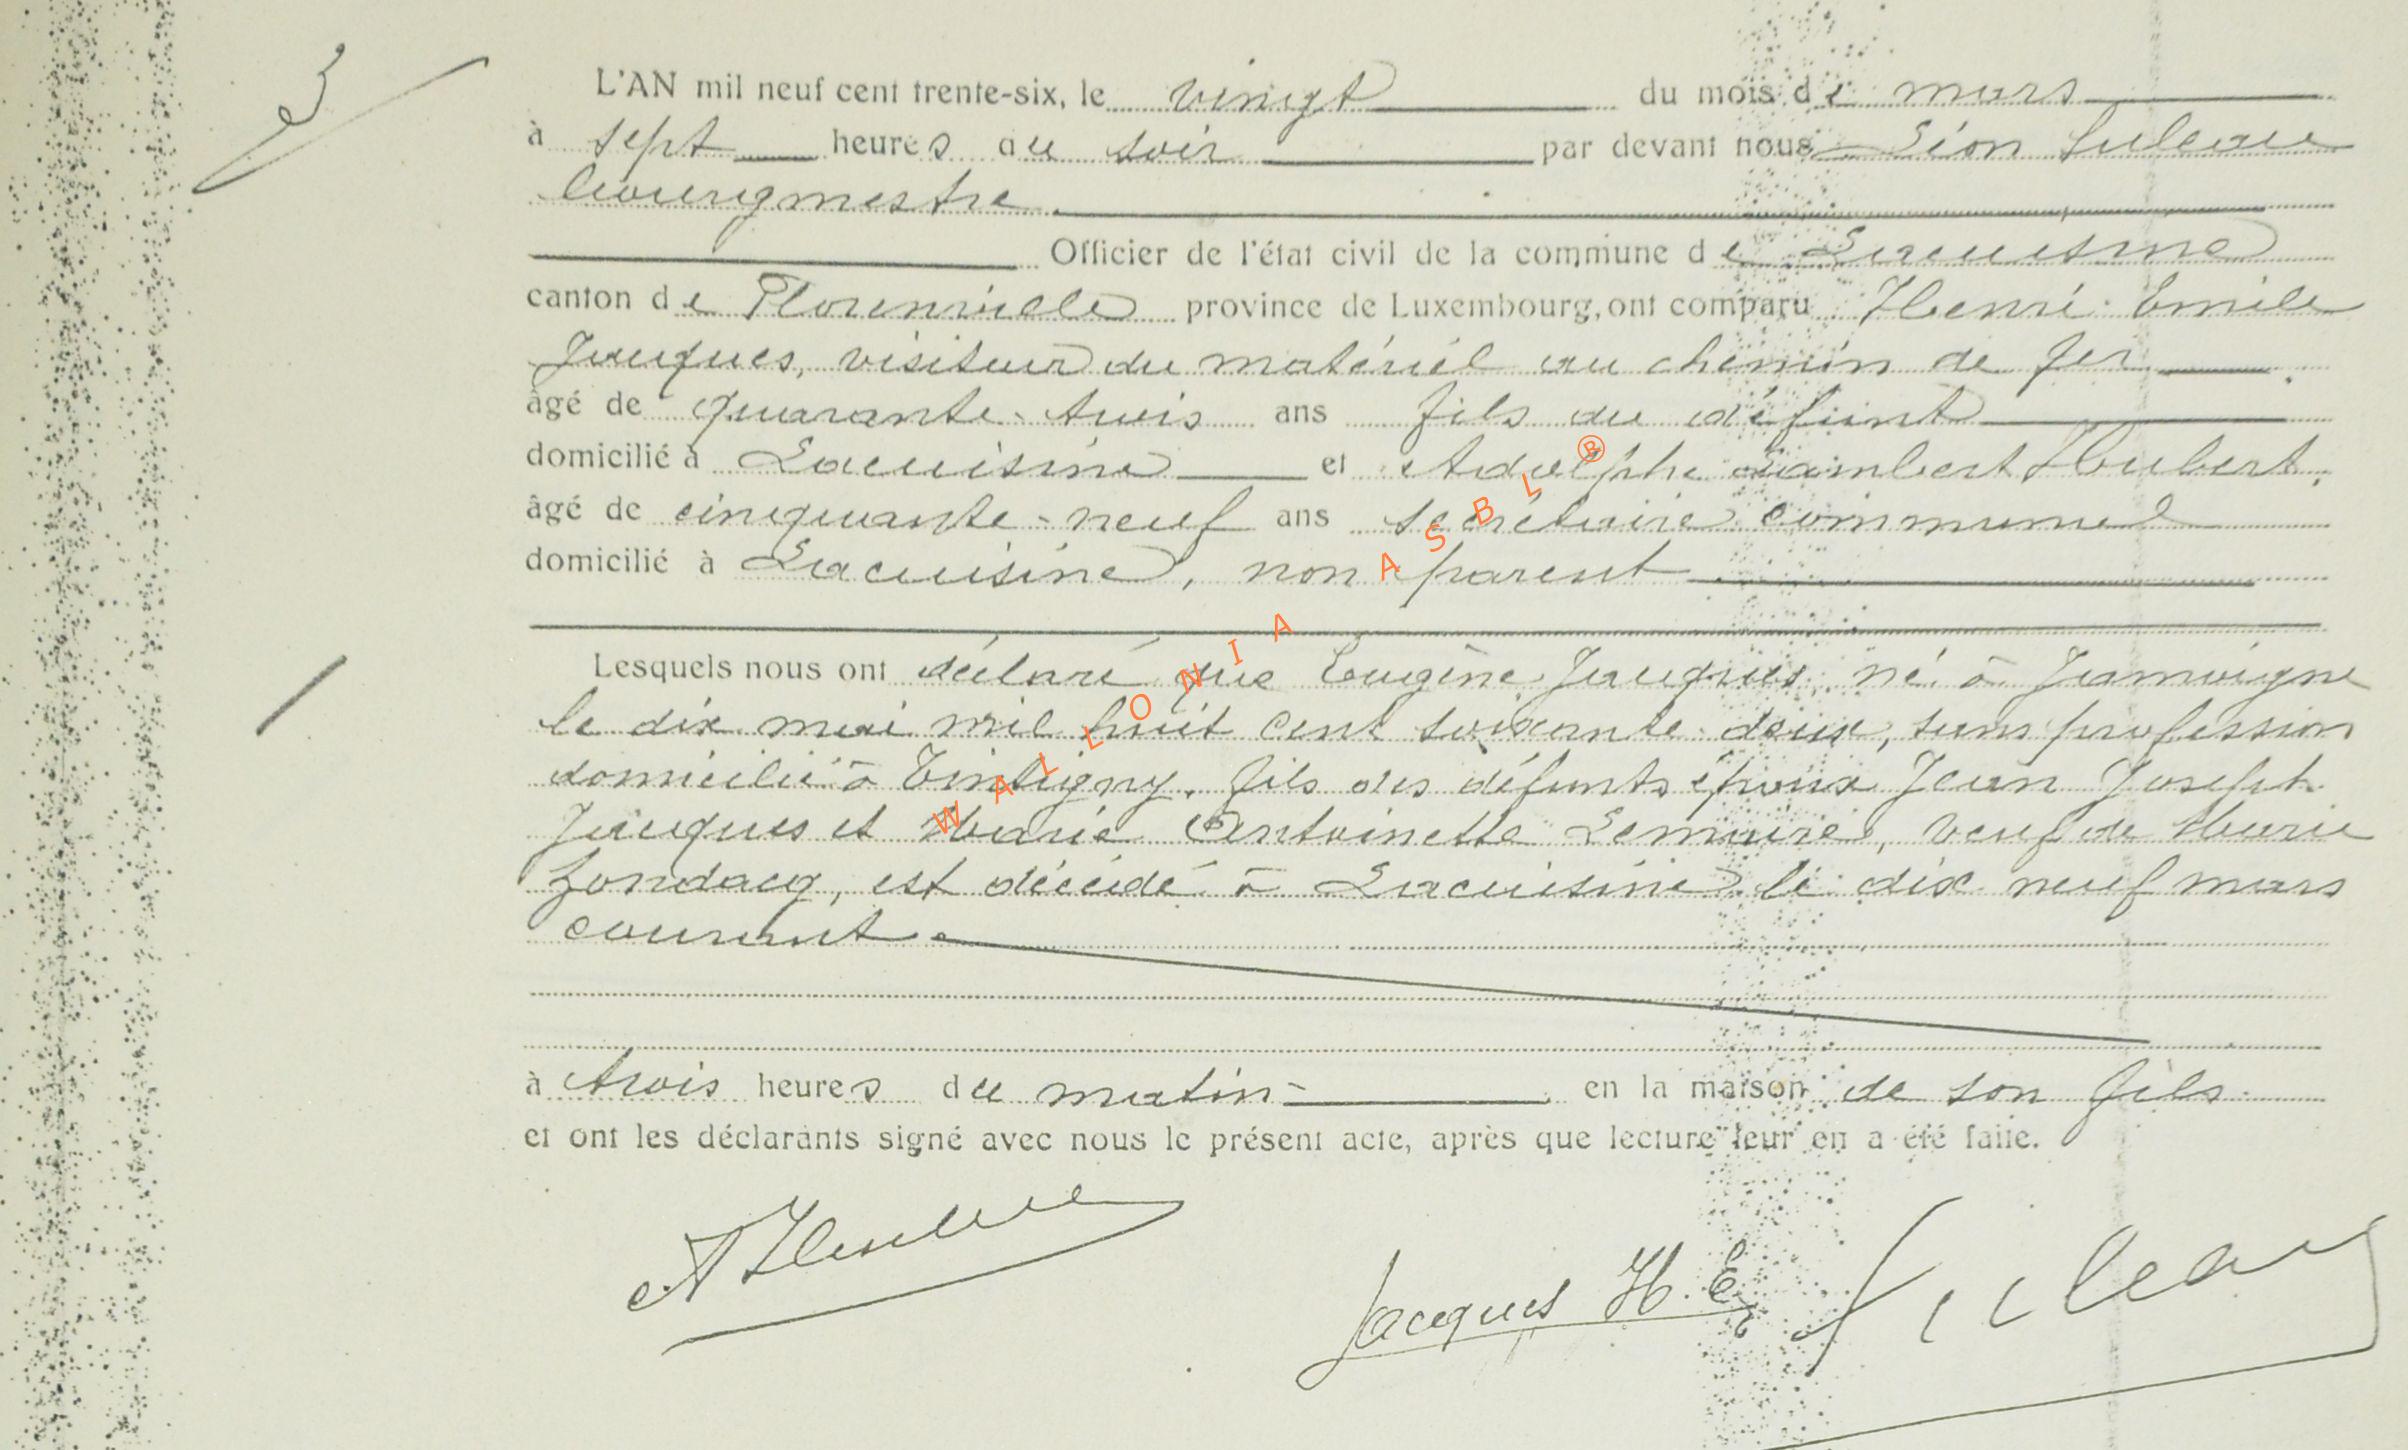 3
L'AN mil neuf cent trente-six, le vingt du mois de mars
à sept heures du soir par devant nous Léon Suleau
bourgmestre
Officier de l'état civil de la commune de Lacuisine
canton de Florenville province de Luxembourg, ont comparu Henri Emile
Jacques, visiteur du matériel au chemin de fer
âgé de quarante-trois ans fils du défunt
domicilié à Lacuisine et Adolphe Lambert Hubert,
âgé de cinquante-neuf ans secrétaire communal
domicilié à Lacuisine, non parent
Lesquels nous ont déclaré que Eugène Jacques, né à Jamoigne
le dix mai mil huit cent soixante-deux, sans profession
domicilié à Tintigny, fils des défunts époux Jean Joseph
Jacques et Marie Antoinette Lemaire, veuf de Marie
Zondacq, est décédé à Lacuisine le dix neuf mars
courant
à trois heures du matin en la maison de son fils
et ont les déclarants signé avec nous le présent acte, après que lecture leur en a été faite.
Jacques H. E.
WALLONIA ASBL ®